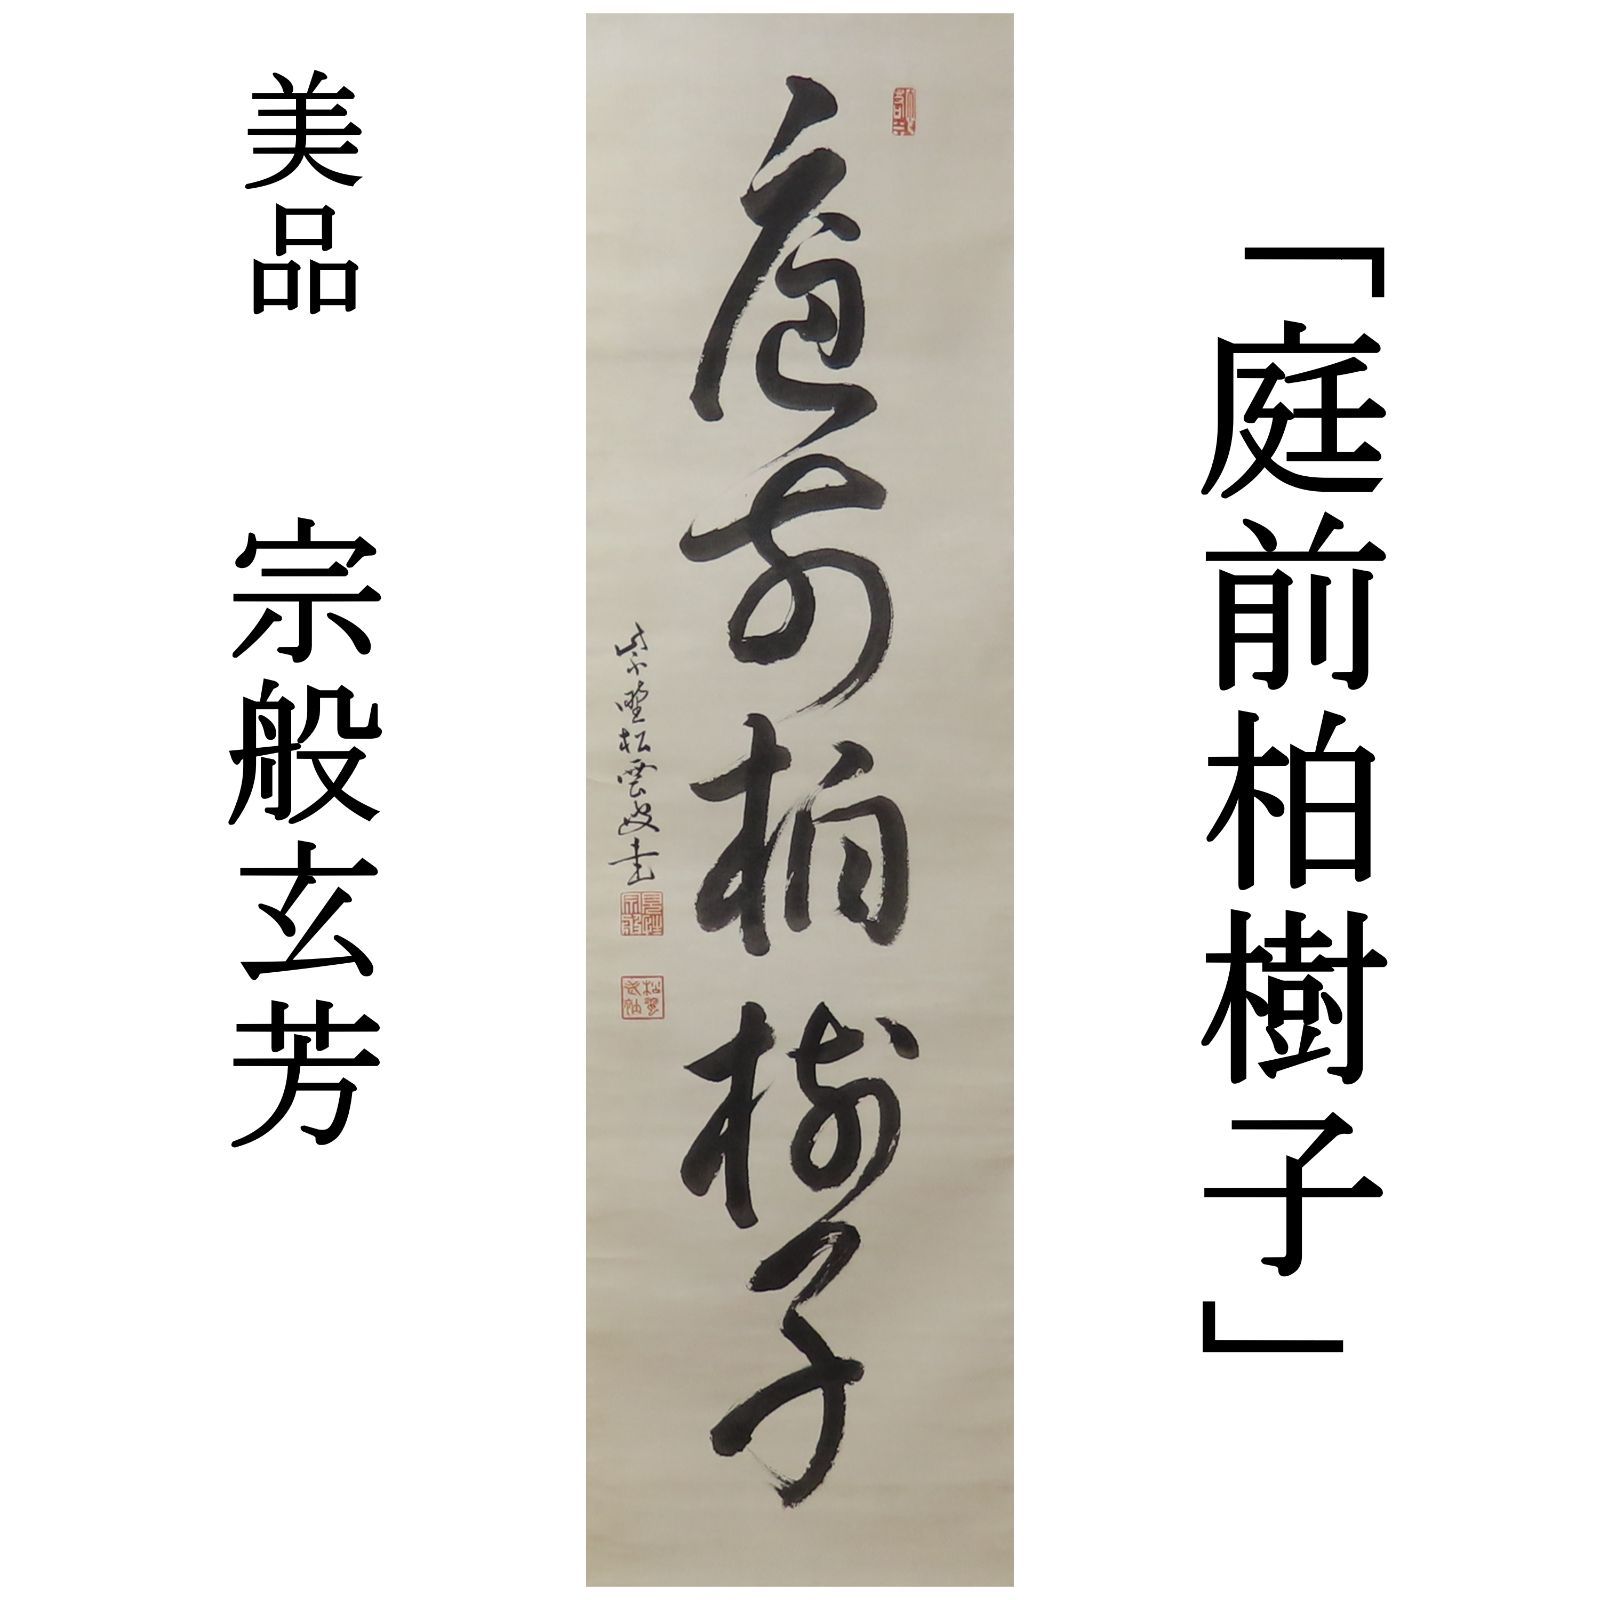 「庭前柏樹子」
庭前柏樹子
紫野松雲叟書
美品 宗般玄芳